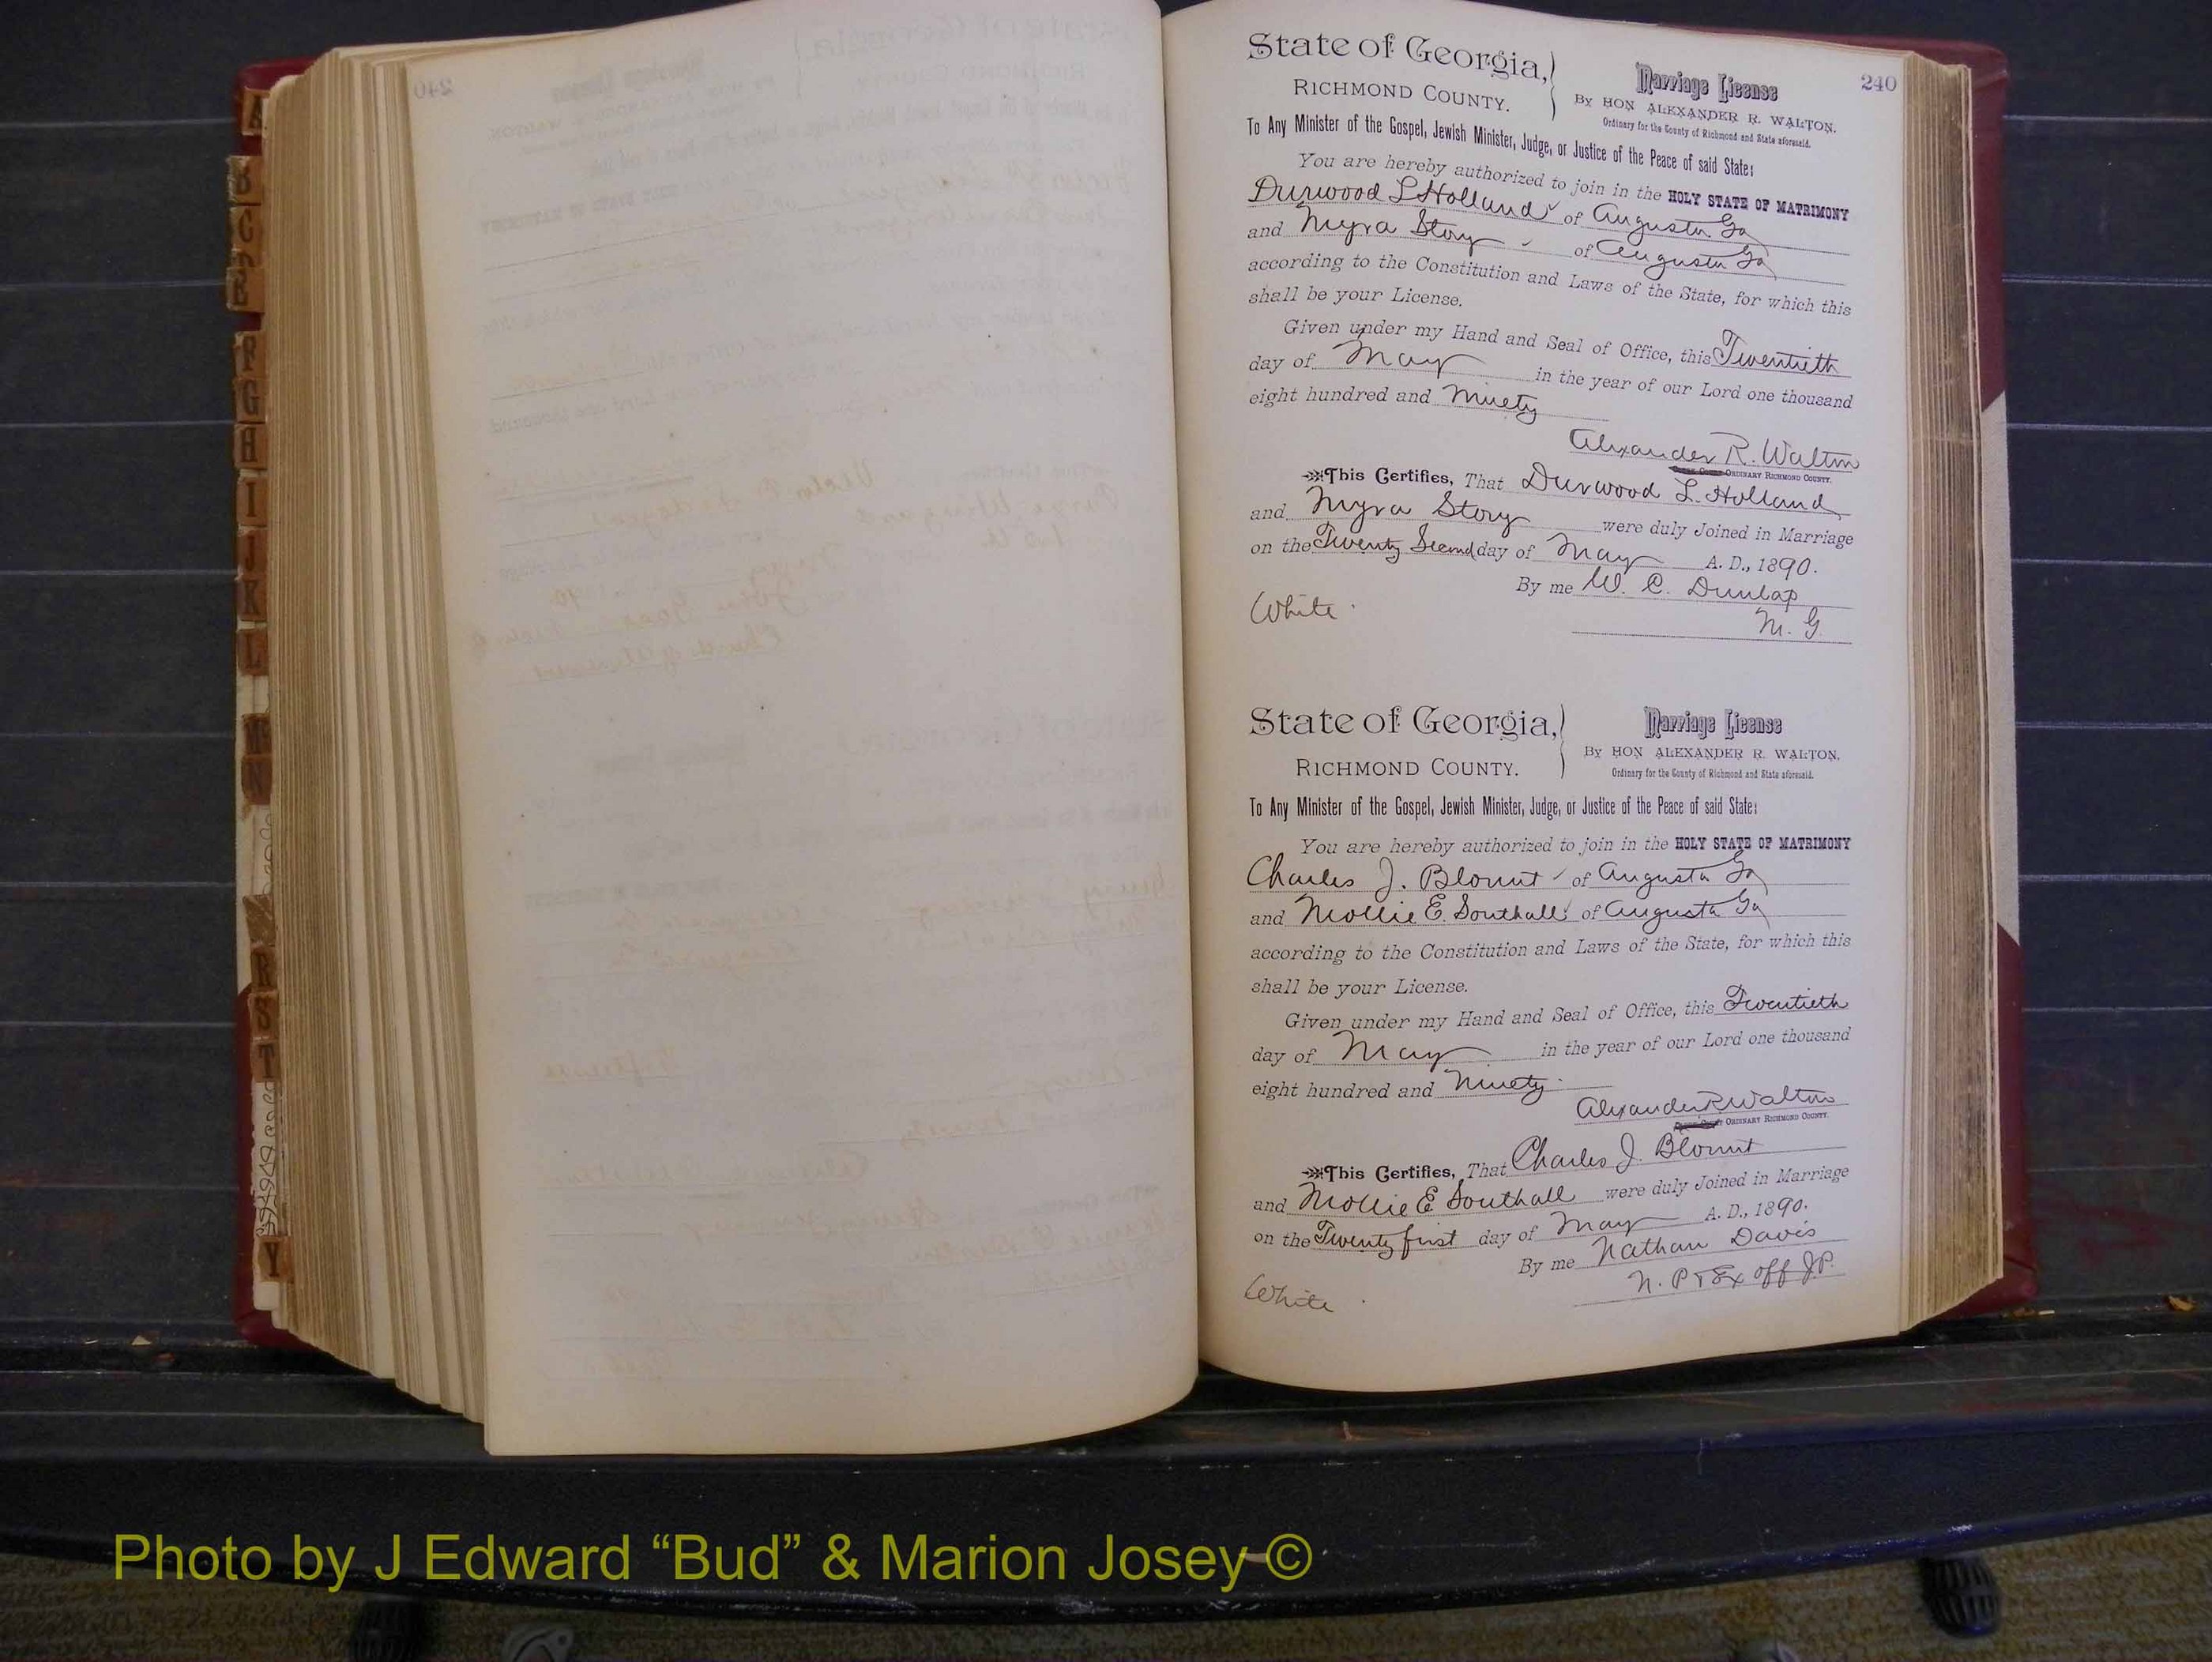 240
State of Georgia,
RICHMOND COUNTY.
Marriage License
By HON ALEXANDER R. WALTON.
Ordinary for the County of Richmond and State aforesaid.
To Any Minister of the Gospel, Jewish Minister, Judge, or Justice of the Peace of said State:
You are hereby authorized to join in the HOLY STATE OF MATRIMONY
Durwood L Holland of Augusta Ga
and Myra Story of Augusta Ga
according to the Constitution and Laws of the State, for which this
shall be your License.
Given under my Hand and Seal of Office, this Twentieth
day of May in the year of our Lord one thousand
eight hundred and Ninety
Alexander R. Walton
ORDINARY RICHMOND COUNTY.
This Certifies, That Durwood L. Holland
and Myra Story were duly Joined in Marriage
on the Twenty Second day of May A. D., 1890.
By me W. C. Dunlap
M. G.
White
State of Georgia,
RICHMOND COUNTY.
Marriage License
By HON ALEXANDER R. WALTON.
Ordinary for the County of Richmond and State aforesaid.
To Any Minister of the Gospel, Jewish Minister, Judge, or Justice of the Peace of said State:
You are hereby authorized to join in the HOLY STATE OF MATRIMONY
Charles J. Blount of Augusta Ga
and Mollie E. Southall of Augusta Ga
according to the Constitution and Laws of the State, for which this
shall be your License.
Given under my Hand and Seal of Office, this Twentieth
day of May in the year of our Lord one thousand
eight hundred and Ninety
Alexander R Walton
ORDINARY RICHMOND COUNTY.
This Certifies, That Charles J. Blount
and Mollie E Southall were duly Joined in Marriage
on the Twenty first day of May A. D., 1890.
By me Nathan Davis
N. P & Ex off J.P.
White
A
B
C
D
E
F
G
H
I
J
K
L
M
N
R
S
T
Y
Photo by J Edward “Bud” & Marion Josey ©